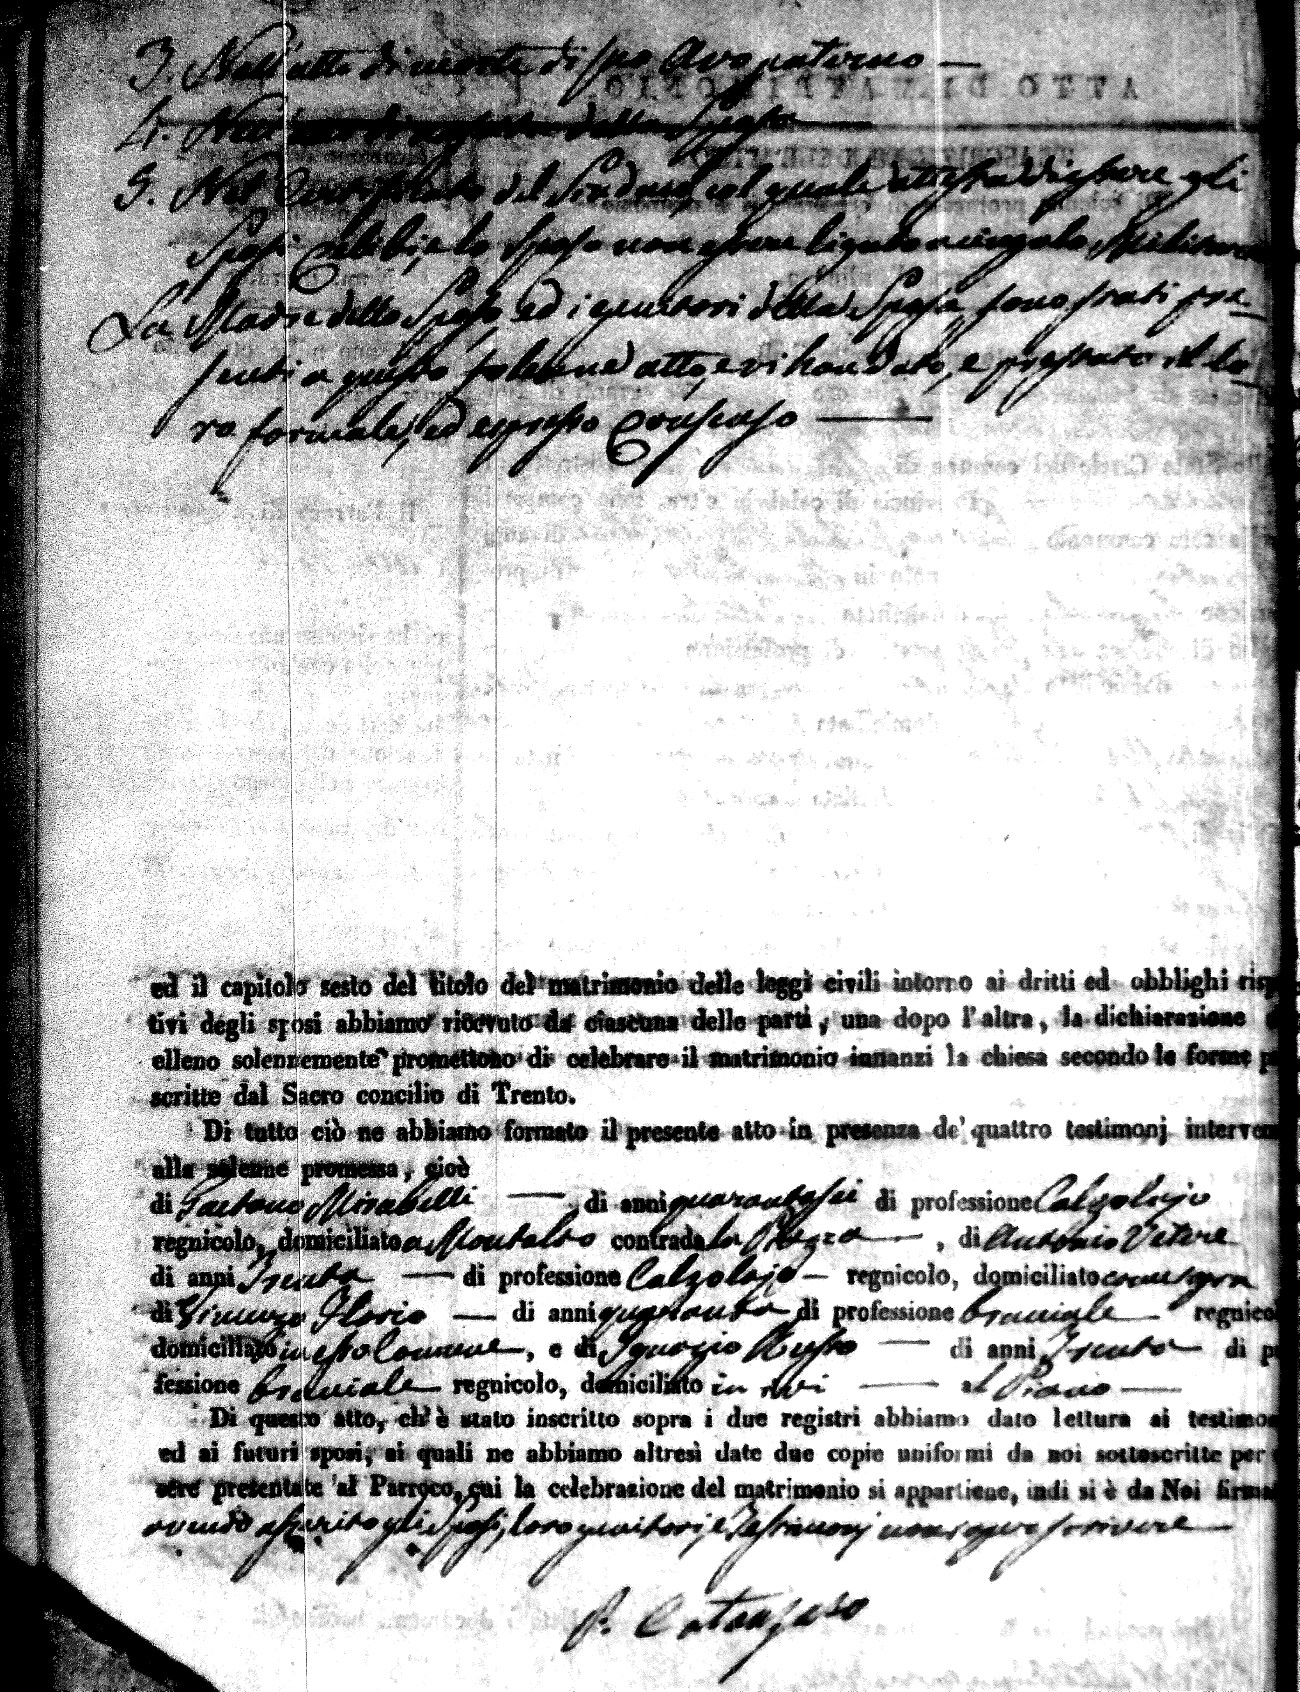 3. Nell'atto di morte di suo Avo paterno —
4. Nell'atto di nascita della Sposa —
5. Nel Certificato del Sindaco, col quale attesta di essere gli
Sposi celibi, e lo Sposo non essere ligato a cingolo Militare
La Madre dello Sposo, ed i genitori della Sposa sono stati pre-
senti a questo solenne atto, e vi han dato, e prestato il lo-
ro formale, ed espresso Consenso —
ed il capitolo sesto del titolo del matrimonio delle leggi civili intorno ai dritti ed obblighi rispe
tivi degli sposi abbiamo ricevuto da ciascuna delle parti, una dopo l'altra, la dichiarazione
elleno solennemente promettono di celebrare il matrimonio innanzi la chiesa secondo le forme p
scritte dal Sacro concilio di Trento.
Di tutto ciò ne abbiamo formato il presente atto in presenza de' quattro testimonj interven
alla solenne promessa, cioè
di Gaetano Mirabelli — , di anni quarantasei di professione Calzolajo
regnicolo, domiciliato a Montalto contrada la Piazza — , di Antonio Vetere
di anni Trenta — di professione Calzolajo — regnicolo, domiciliato come sopra
di Florio — di anni quaranta di professione braciale — regnico
domiciliato in esso Comune, e di Ignazio Russo — di anni Trenta — di p
fessione braciale regnicolo, domiciliato in ivi — al Piano —
Di questo atto, ch'è stato inscritto sopra i due registri abbiamo dato lettura ai testimo
ed ai futuri sposi, ai quali ne abbiamo altresì date due copie uniformi da noi sottoscritte per
sere presentate al Parroco, cui la celebrazione del matrimonio si appartiene, indi si è da Noi firma
avendo asserito gli Sposi, loro genitori, e Testimonj non sapere scrivere —
P. Catanzaro